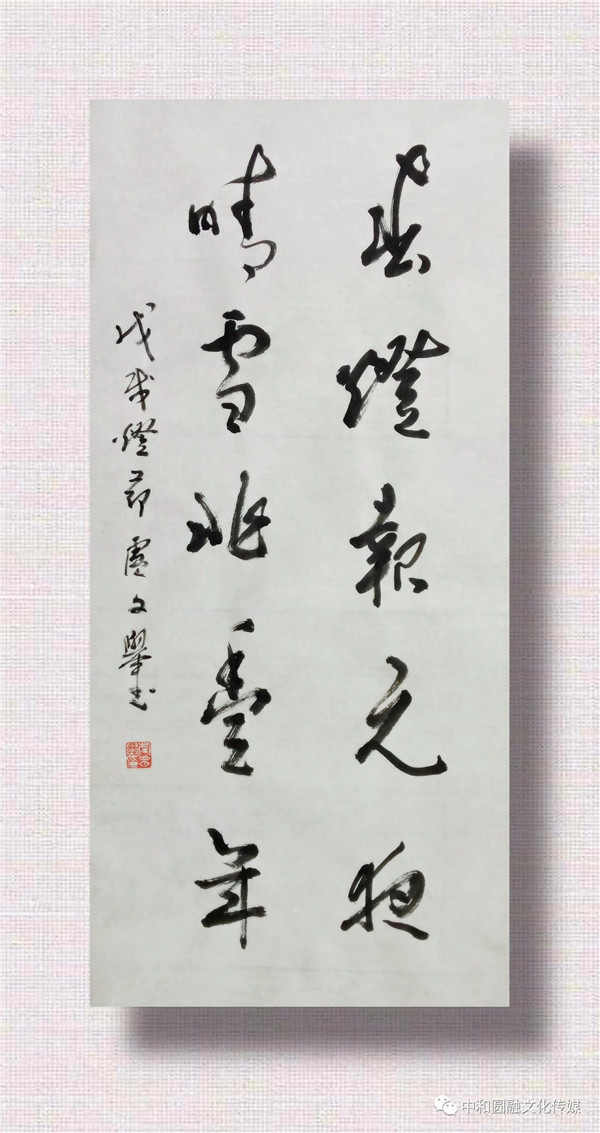 燈報元夜
晴雪兆豐年
戊戌燈節文舉书
中和圆融文化传媒